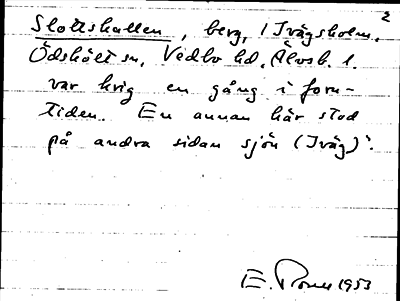 2
Slottshallen, berg, / Ivägsholm,
Ödskölt sn, Vedbo hd, Älvsb. l.
var krig en gång i forn-
tiden. En annan här stod
på andra sidan sjön (Iväg)".
E. 1953